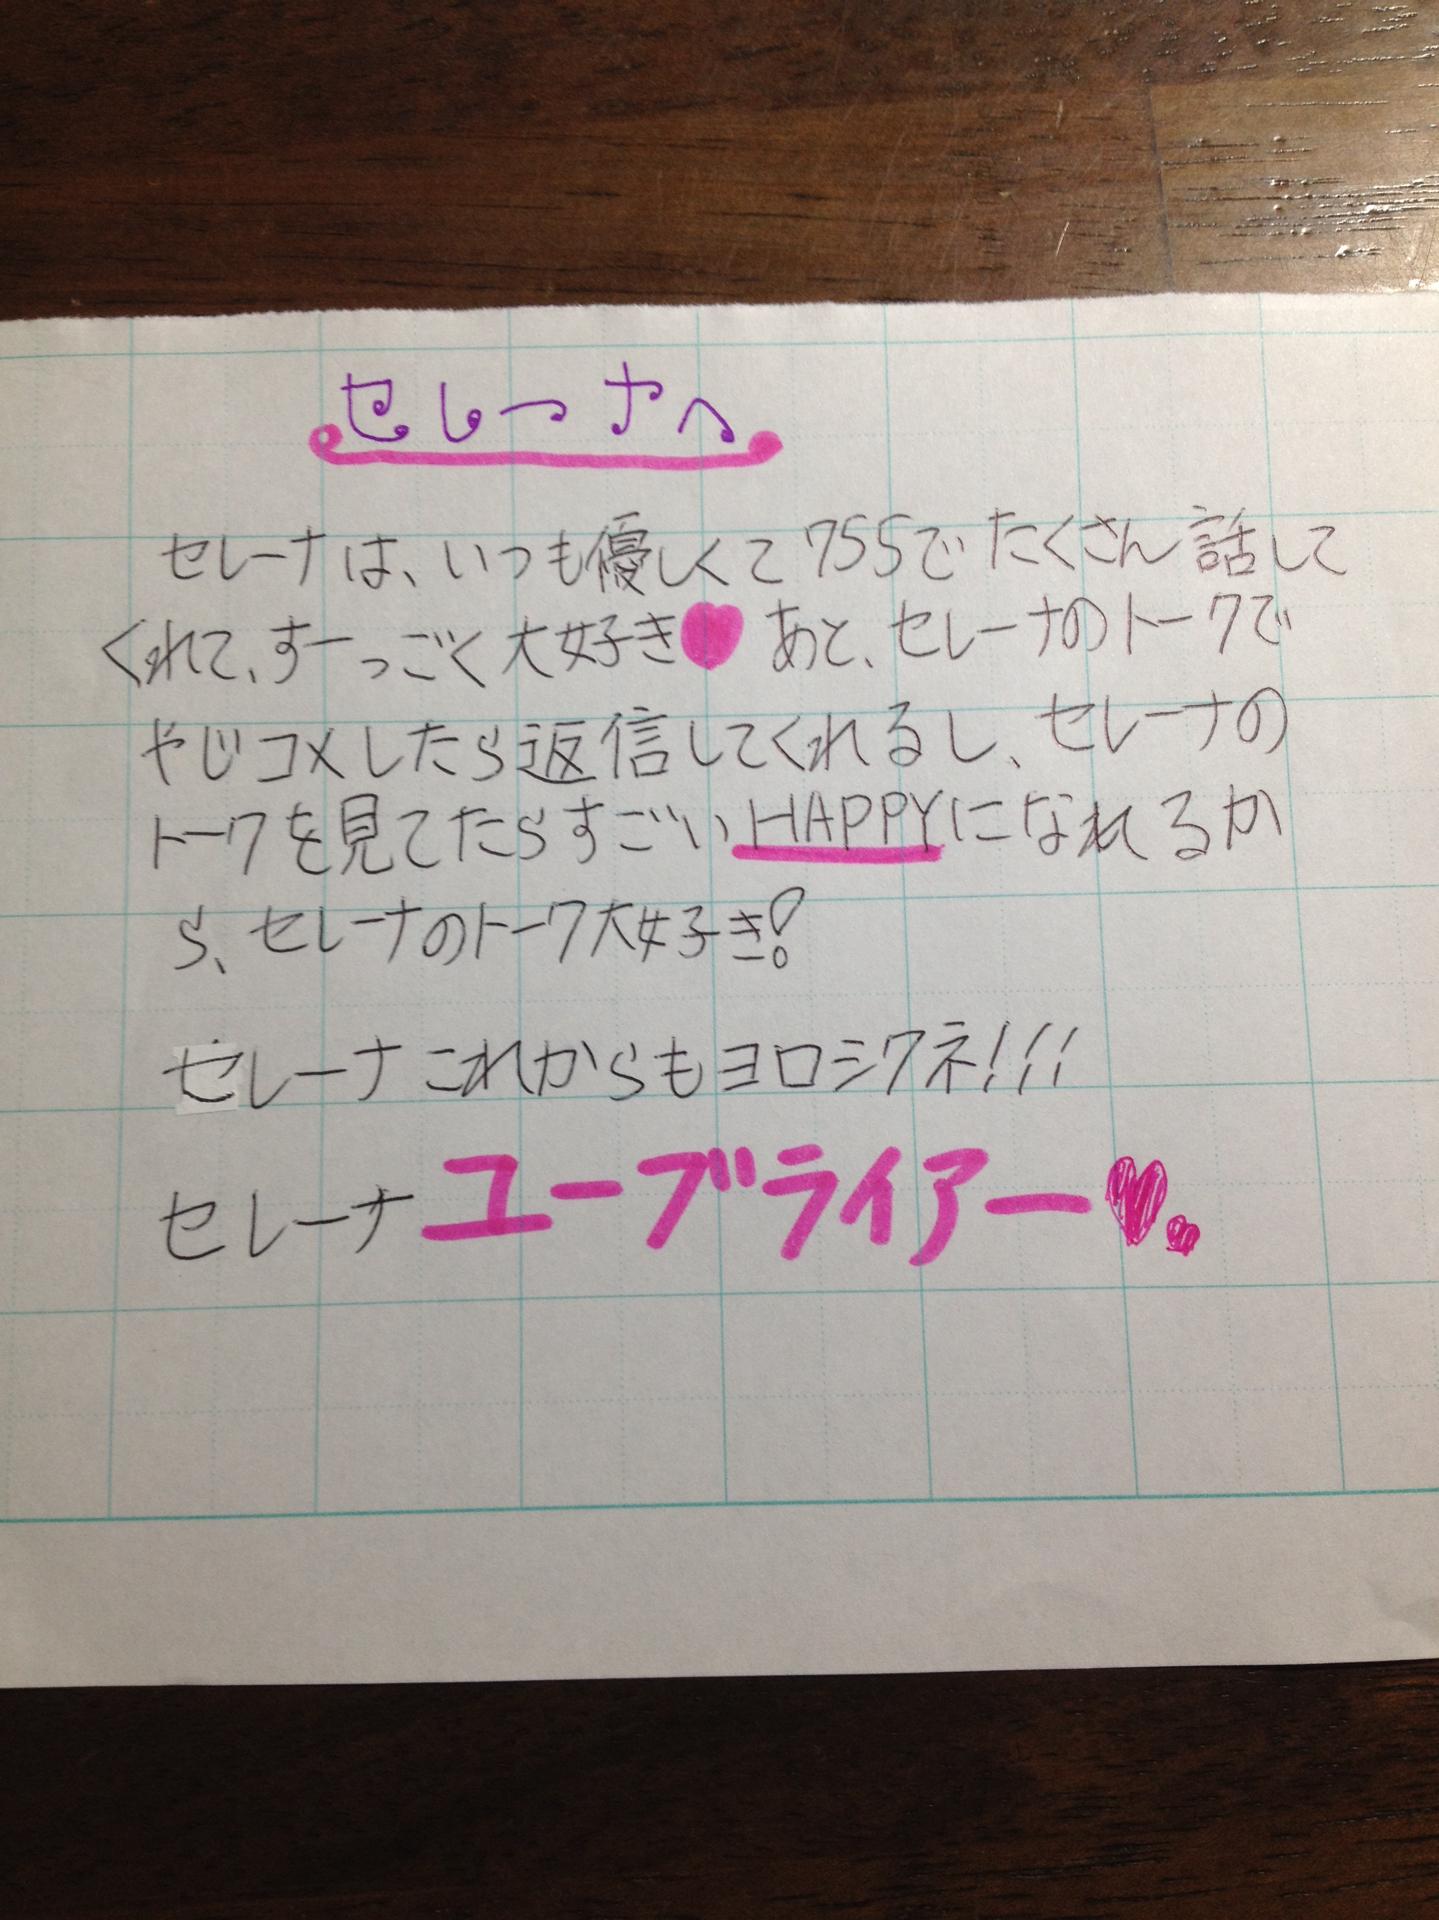 セレーナへ
セレーナは、いつも優しくて755でたくさん話して
くれて、すーっごく大好き♥ あと、セレーナのトークで
やじコメしたら返信してくれるし、セレーナの
トークを見てたらすごいHAPPYになれるか
ら、セレーナのトーク大好き!
セレーナこれからもヨロシクネ!!!
セレーナユーブライアー♥♥